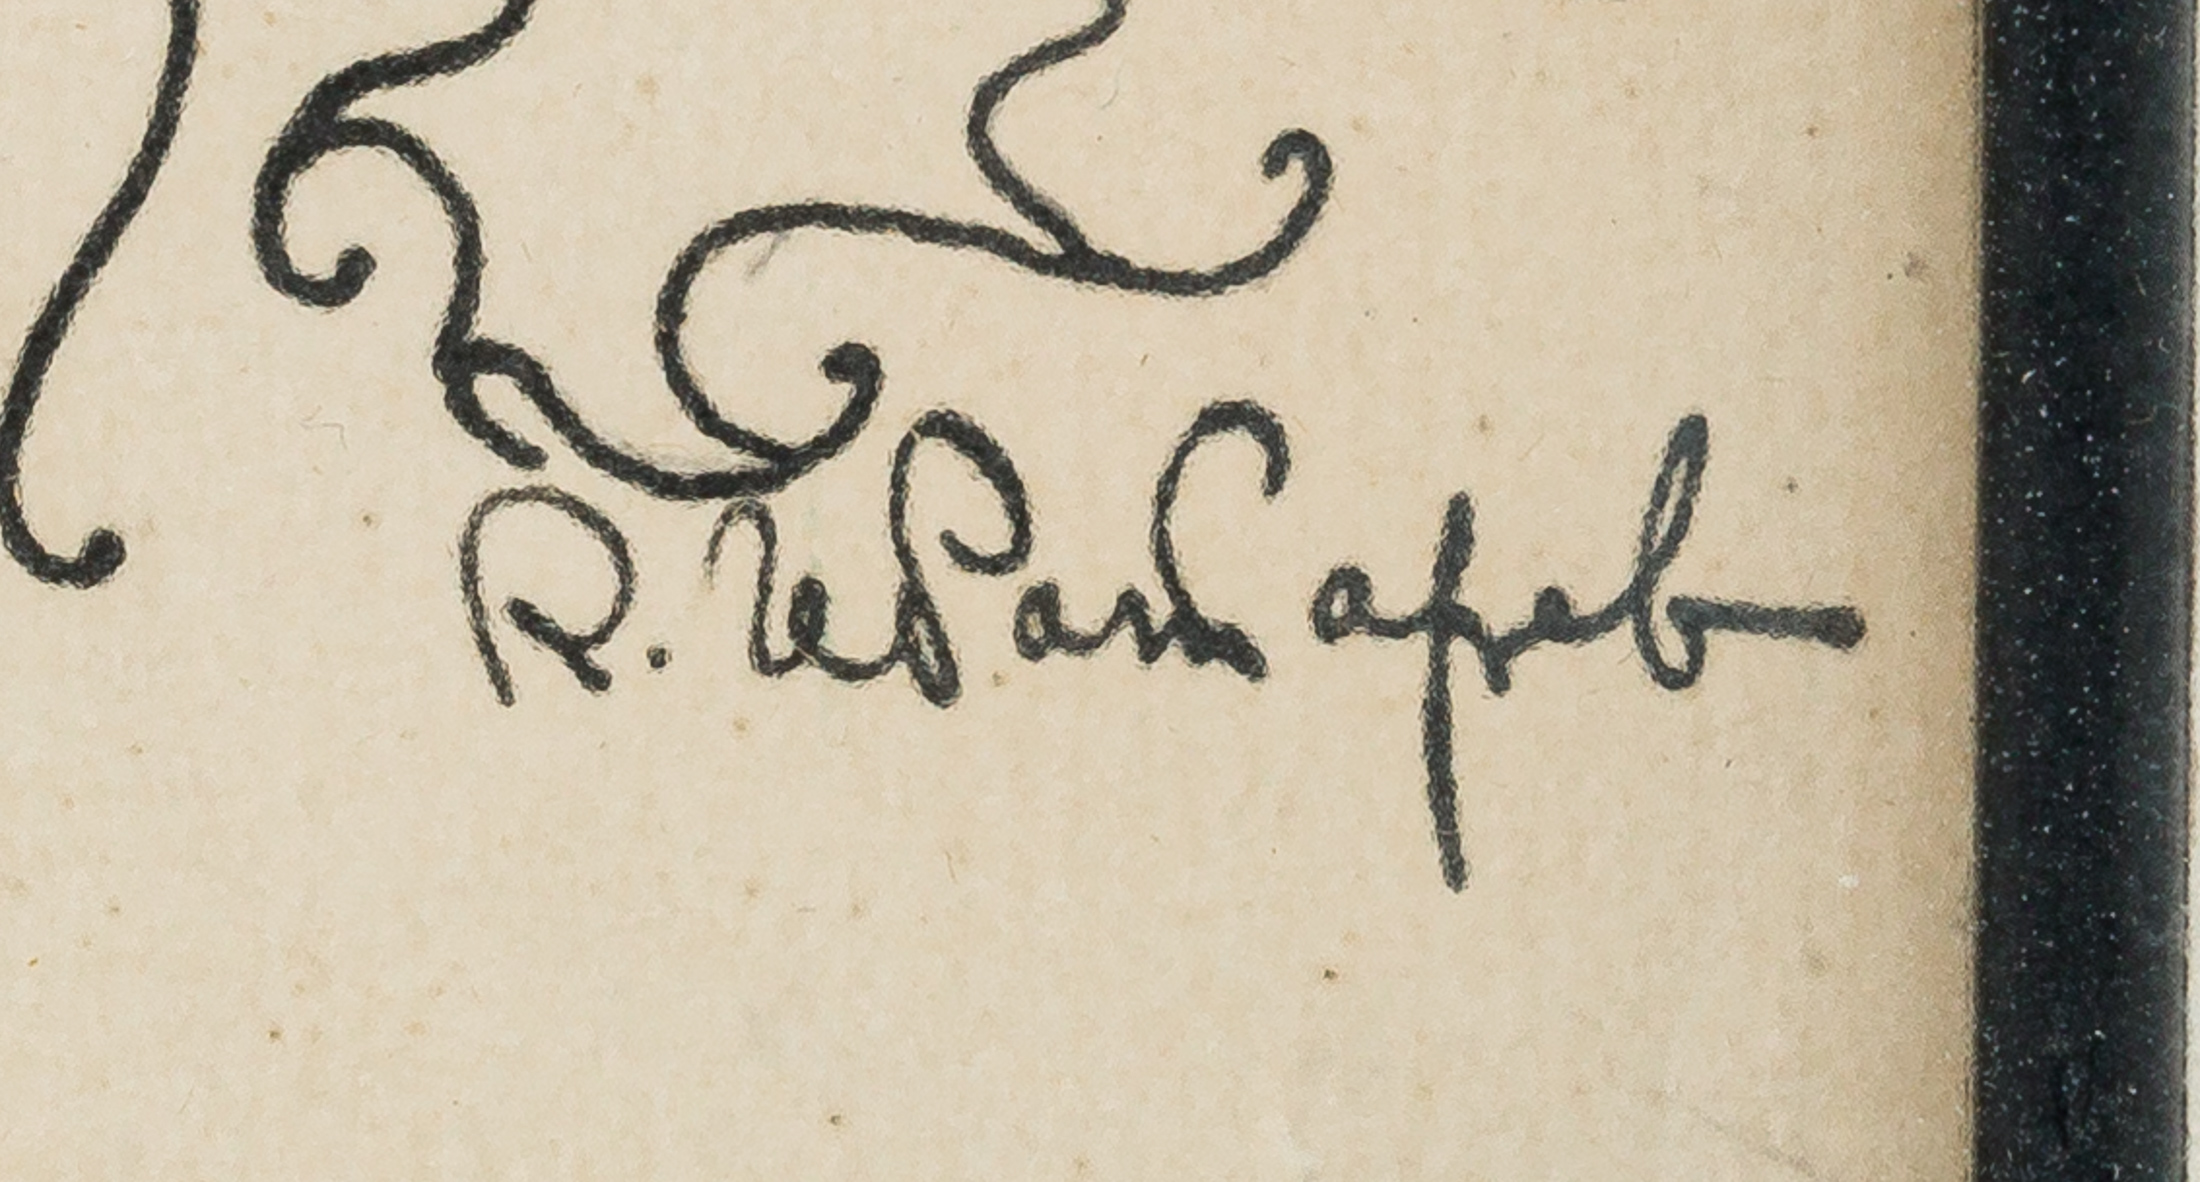 К. Чеботарев